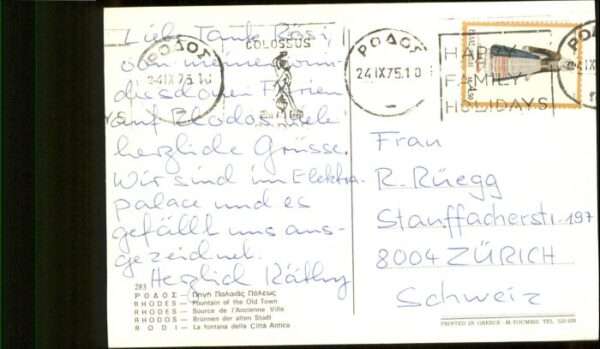 Liebe Tante Rösi,
von meinen wun-
Ferien
auf Rhodos viele
herzliche Grüsse.
Wir sind im Elektra-
palace und es
gefällt uns aus-
gezeichnet.
Herzlich Käthy
ΡΟΔΟΣ
24IX75.10
COLOSSUS
ΡΟΔΟΣ
24IX75.10
HAPPY
FAMILY
HOLIDAYS
ΡΟΔΟΣ
Frau
R. Rüegg
Stauffacherstr. 197
8004 ZÜRICH
Schweiz
283
ΡΟΔΟΣ — Πηγή Παλαιᾶς Πόλεως
RHODES — Fountain of the Old Town
RHODES — Source de l'Ancienne Ville
RHODOS — Brunnen der alten Stadt
RODI — La fontana della Città Antica
PRINTED IN GREECE